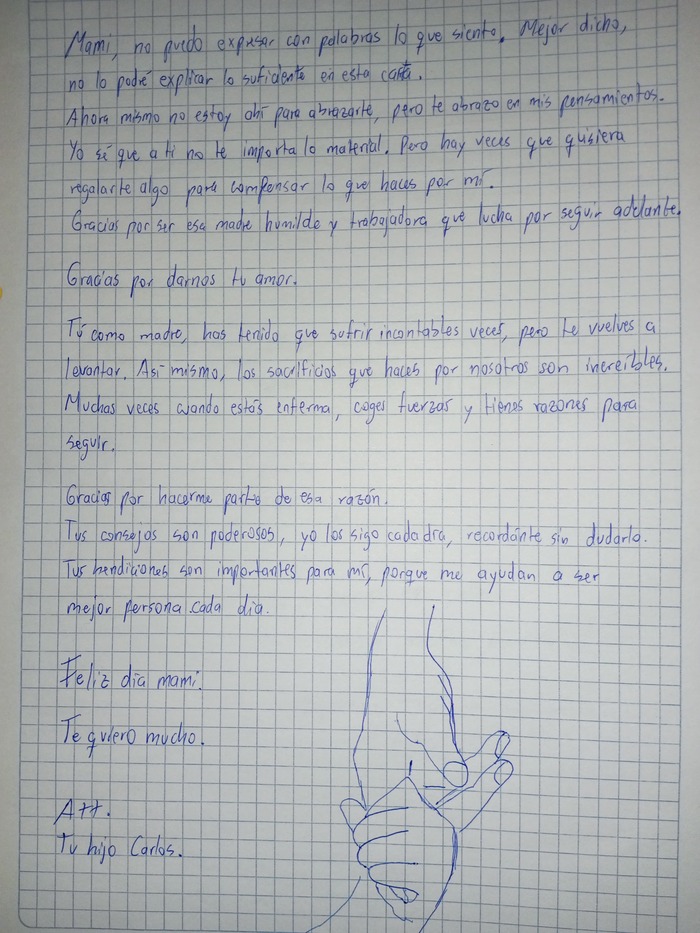 Mami, no puedo expresar con palabras lo que siento. Mejor dicho,
no lo podré explicar lo suficiente en esta carta.
Ahora mismo no estoy ahí para abrazarte, pero te abrazo en mis pensamientos.
Yo sé que a ti no te importa lo material. Pero hay veces que quisiera
regalarte algo para compensar lo que haces por mí.
Gracias por ser esa madre humilde y trabajadora que lucha por seguir adelante.
Gracias por darnos tu amor.
Tú como madre, has tenido que sufrir incontables veces, pero te vuelves a
levantar. Así mismo, los sacrificios que haces por nosotros son increíbles.
Muchas veces cuando estás enferma, coges fuerzas y tienes razones para
seguir.
Gracias por hacerme parte de esa razón.
Tus consejos son poderosos, yo los sigo cada día, recordánte sin dudarlo.
Tus bendiciones son importantes para mí, porque me ayudan a ser
mejor persona cada día.
Feliz día mami.
Te quiero mucho.
Att.
Tu hijo Carlos.